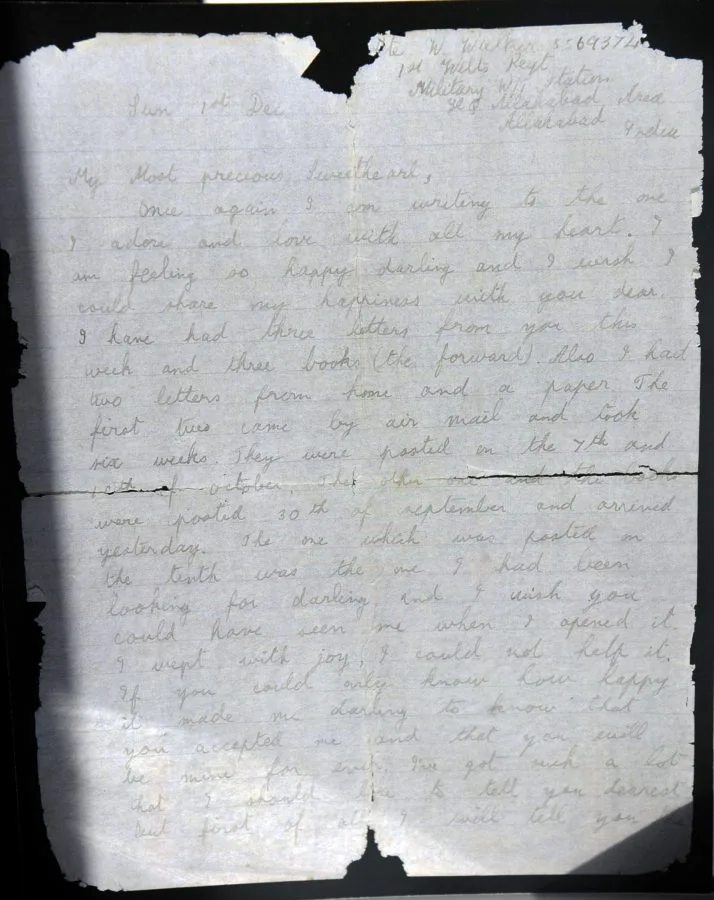 Pte. W. Walker 5569374
1st Wilts Regt
Military W/T Station
HQ Allahabad Area
Allahabad
India
Sun 1st Dec
My Most precious Sweetheart,
Once again I am writing to the one
I adore and love with all my heart. I
am feeling so happy darling and I wish I
could share my happiness with you dear.
I have had three letters from you this
week and three books (the forward). Also I had
two letters from home and a paper. The
first two came by air mail and took
six weeks. They were posted on the 7th and
10th of October, The other one and the books
were posted 30th of september and arrived
yesterday. The one which was posted on
the tenth was the one I had been
looking for darling and I wish you
could have seen me when I opened it.
I wept with joy, I could not help it.
If you could only know how happy
it made me darling to know that
you accepted me and that you will
be mine for ever. I've got such a lot
that I should like to tell you dearest
but first of all I will tell you the